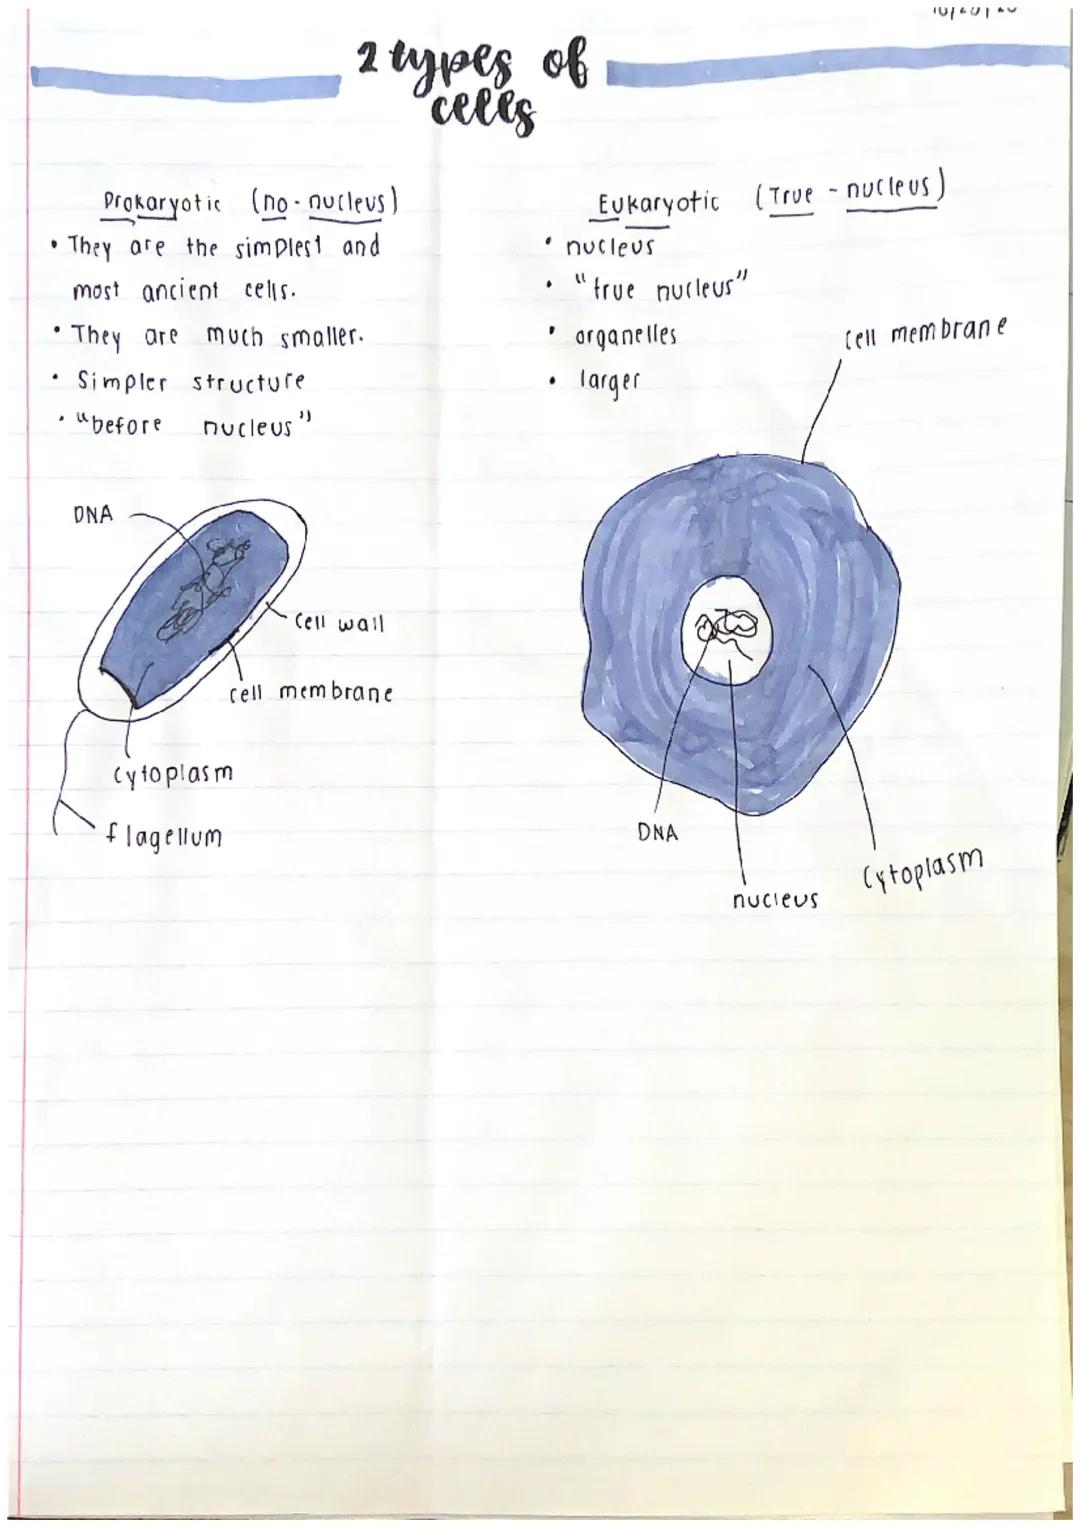 2 types of
cells
Prokaryotic (no-nucleus)
• They are the simplest and
most ancient cells.
• They are much smaller.
• Simpler structure
• "before nucleus"
DNA
Cell wall
cell membrane
Cytoplasm
flagellum
Eukaryotic (True-nucleus)
• nucleus
• "true nucleus"
• organelles
• larger
cell membrane
DNA
nucleus
Cytoplasm